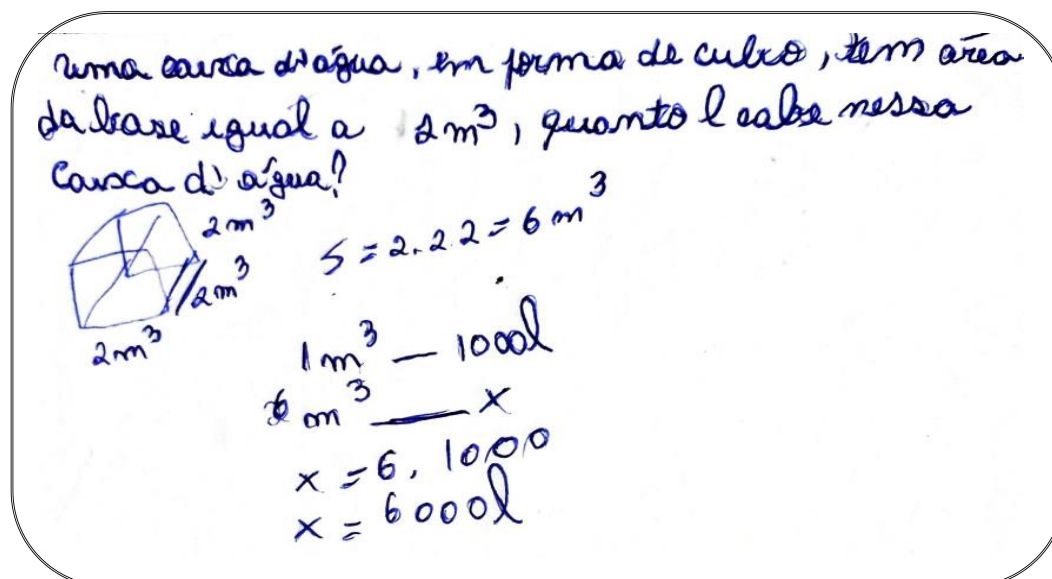 uma caixa d'água, em forma de cubo, tem area
da base igual a 2m³, quanto l cabe nessa
Caixca d' água?
2m³
2m³
2m³
S = 2.2.2 = 6 m³
1m³ — 1000l
6 m³ — x
x = 6. 1000
x = 6000l